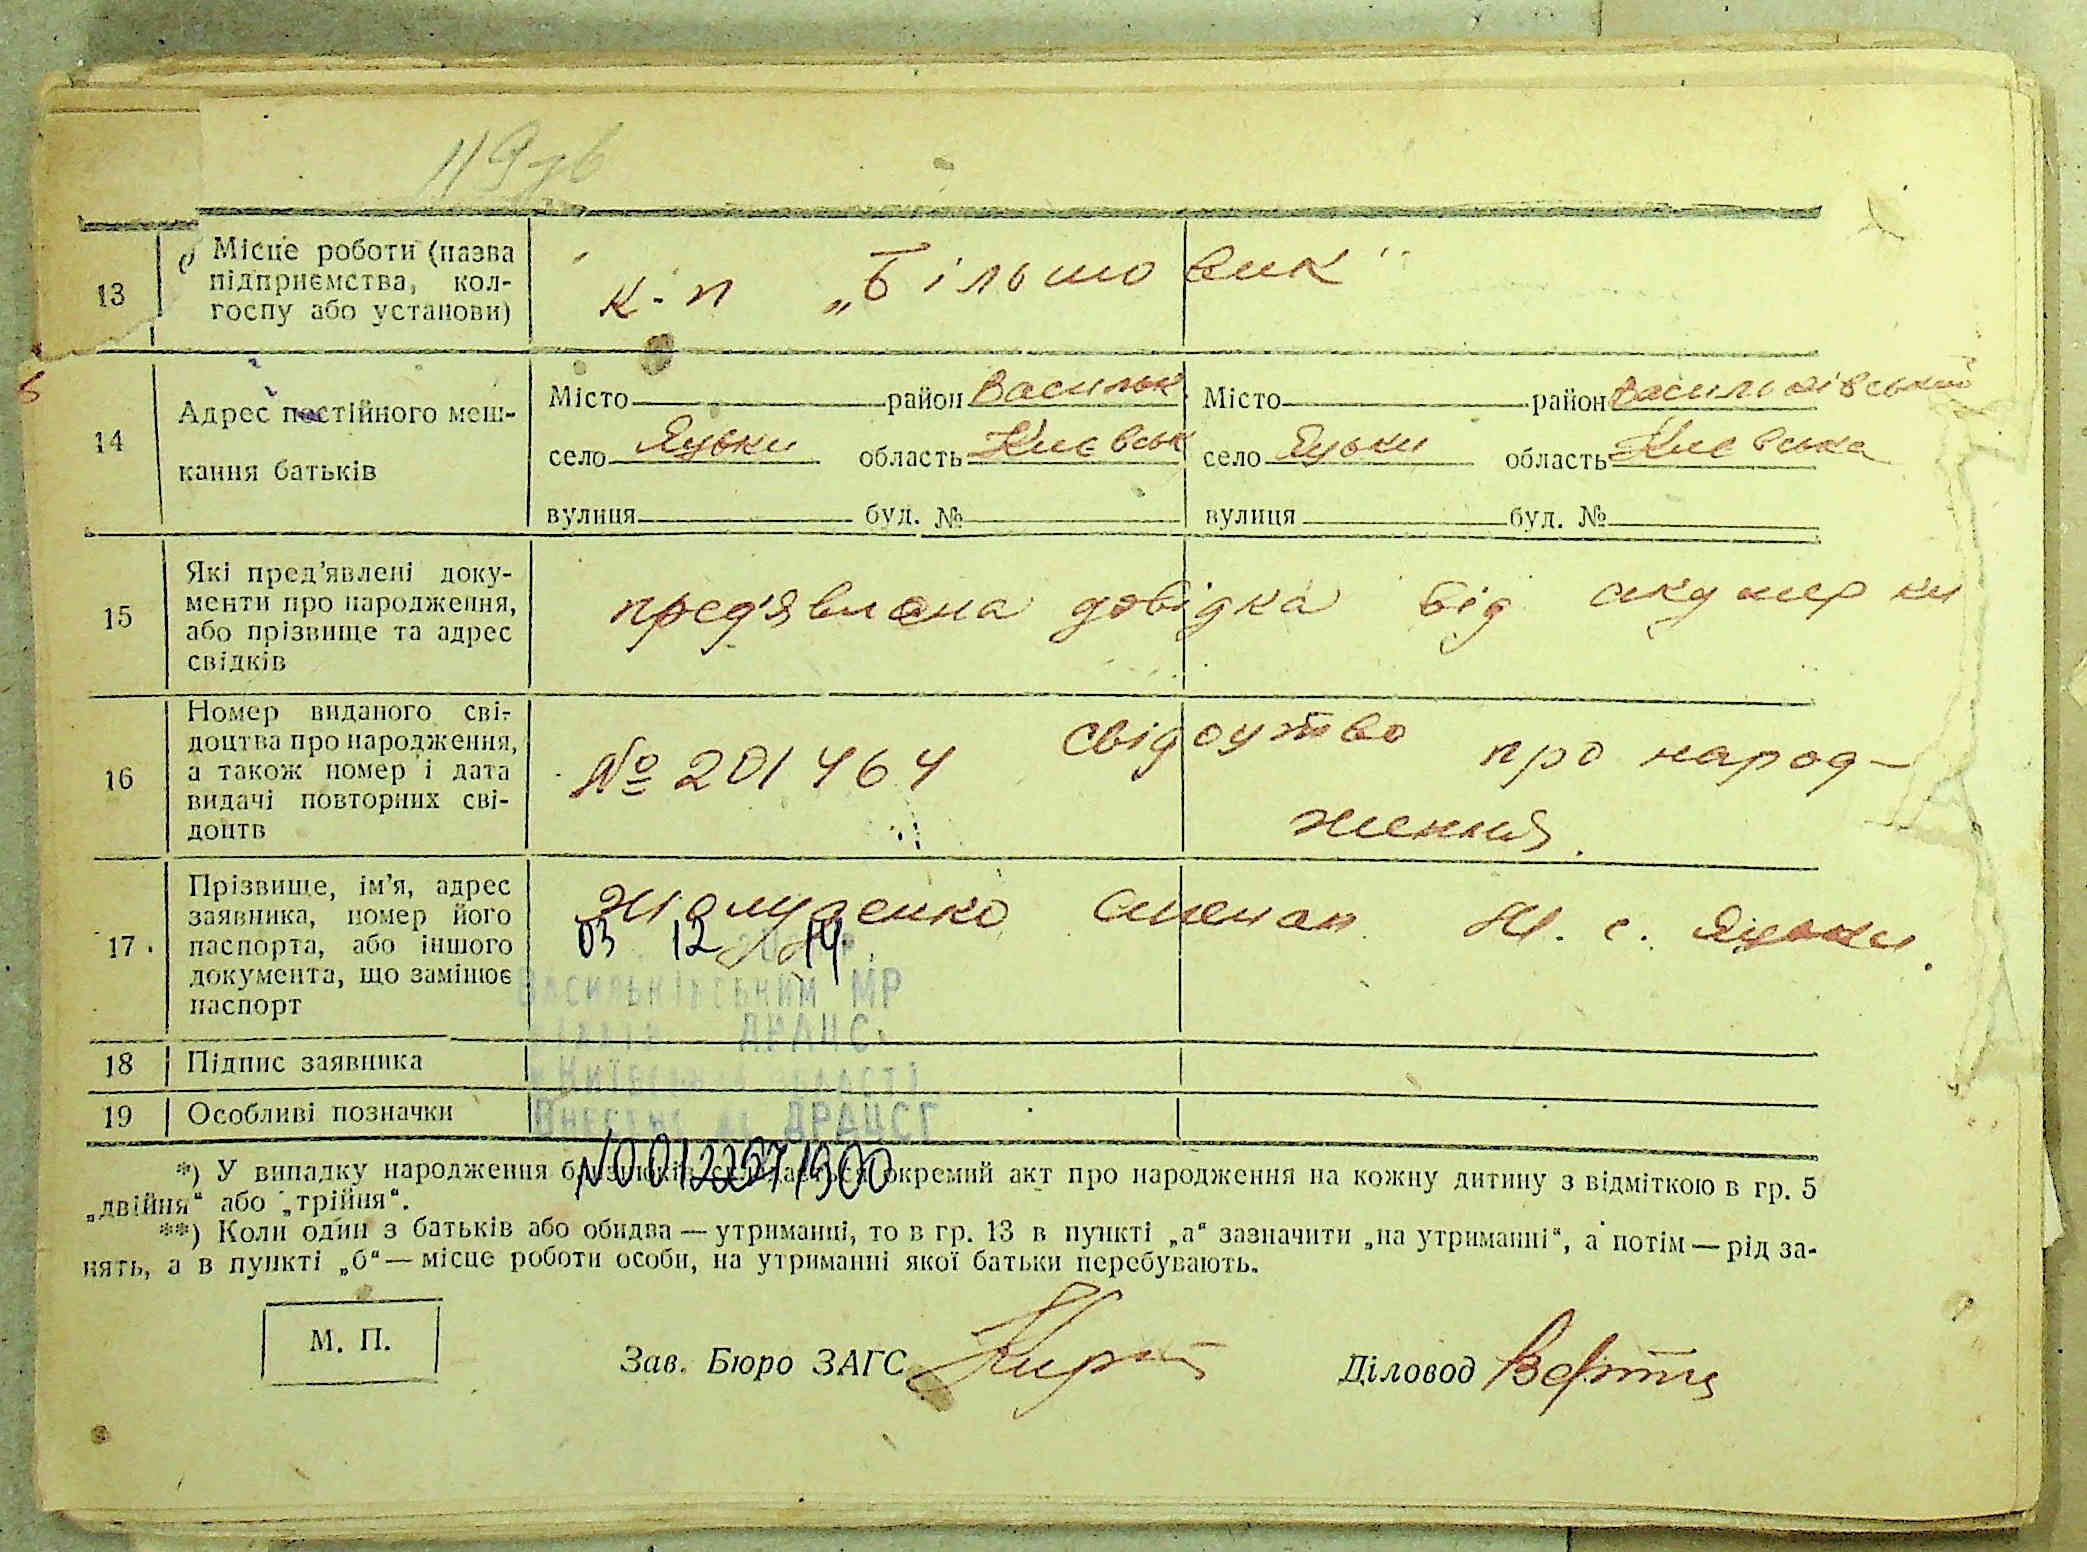 119зв
13
Місце роботи (назва
підприємства, кол-
госпу або установи)
к-п „Більшовик"
14
Адрес постійного меш-
кання батьків
Місто район Васильк.
село Яцьки область Києвськ
вулиця буд. №
Місто район Васильківський
село Яцьки область Києвська
вулиця буд. №
15
Які пред'явлені доку-
менти про народження,
або прізвище та адрес
свідків
пред'явлена довідка від акушерки
16
Номер виданого сві-
доцтва про народження,
а також номер і дата
видачі повторних сві-
доцтв
№ 201464 свідоцтво про народ-
ження.
17.
Прізвище, ім'я, адрес
заявника, номер його
паспорта, або іншого
документа, що замінює
паспорт
Степан с. Яцьки.
03 12 14
Васильківським МР
ДРАЦС
Київській області
Внесено до ДРАЦСГ
18
Підпис заявника
19
Особливі позначки
№001220719300
*) У випадку народження близнюків складається окремий акт про народження на кожну дитину з відміткою в гр. 5
„двійня“ або „трійня“.
**) Коли один з батьків або обидва — утриманні, то в гр. 13 в пункті „а“ зазначити „на утриманні“, а потім — рід за-
нять, а в пункті „б“ — місце роботи особи, на утриманні якої батьки перебувають.
М. П.
Зав. Бюро ЗАГС
Діловод